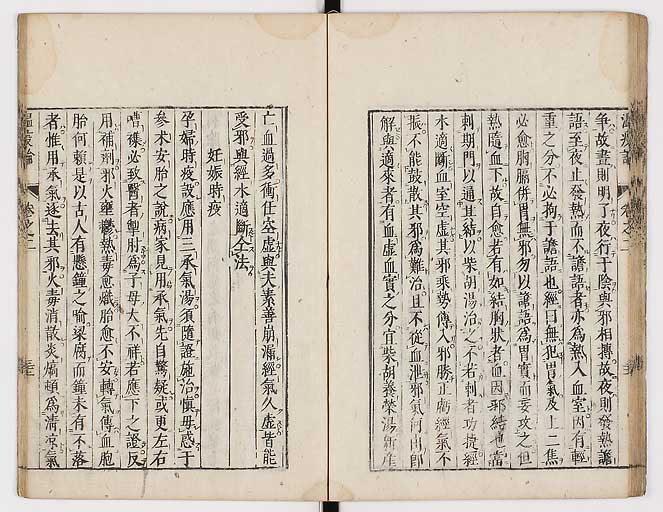 争故晝則明了夜行于陰與邪相搏故夜則發熱譫
語至夜止發熱而不譫語者亦為熱入血室因有輕
重之分不必拘于譫語也經曰無犯胃氣及上二焦
必愈胸膈併胃無邪勿以譫語為胃實而妄攻之但
熱隨血下故自愈若有如結胸狀者血因邪結也當
刺期門以通其結以柴胡湯治之不若刺者功捷經
水適斷血室空虛其邪乘勢傳入邪勝正虧經氣不
振不能鼓散其邪為難治且不從血泄邪氣何由即
解與適來者有血虛血實之分宜柴胡養榮湯新產
亡血過多衝任空虛與夫素善崩漏經氣久虛皆能
受邪與經水適斷仝法
妊娠時疫
孕婦時疫設應用三承氣湯須隨證施治慎毋惑于
參朮安胎之說病家見用承氣先自驚疑或更左右
嘈襍必致醫者掣肘為子母大不祥若應下之證反
用補劑邪火壅鬱熱毒愈熾胎愈不安轉氣傳血胞
胎何賴是以古人有懸鐘之喻梁腐而鐘未有不落
者惟用承氣逐去其邪火毒消散炎熇頓為清涼氣
溫疫論 卷之二